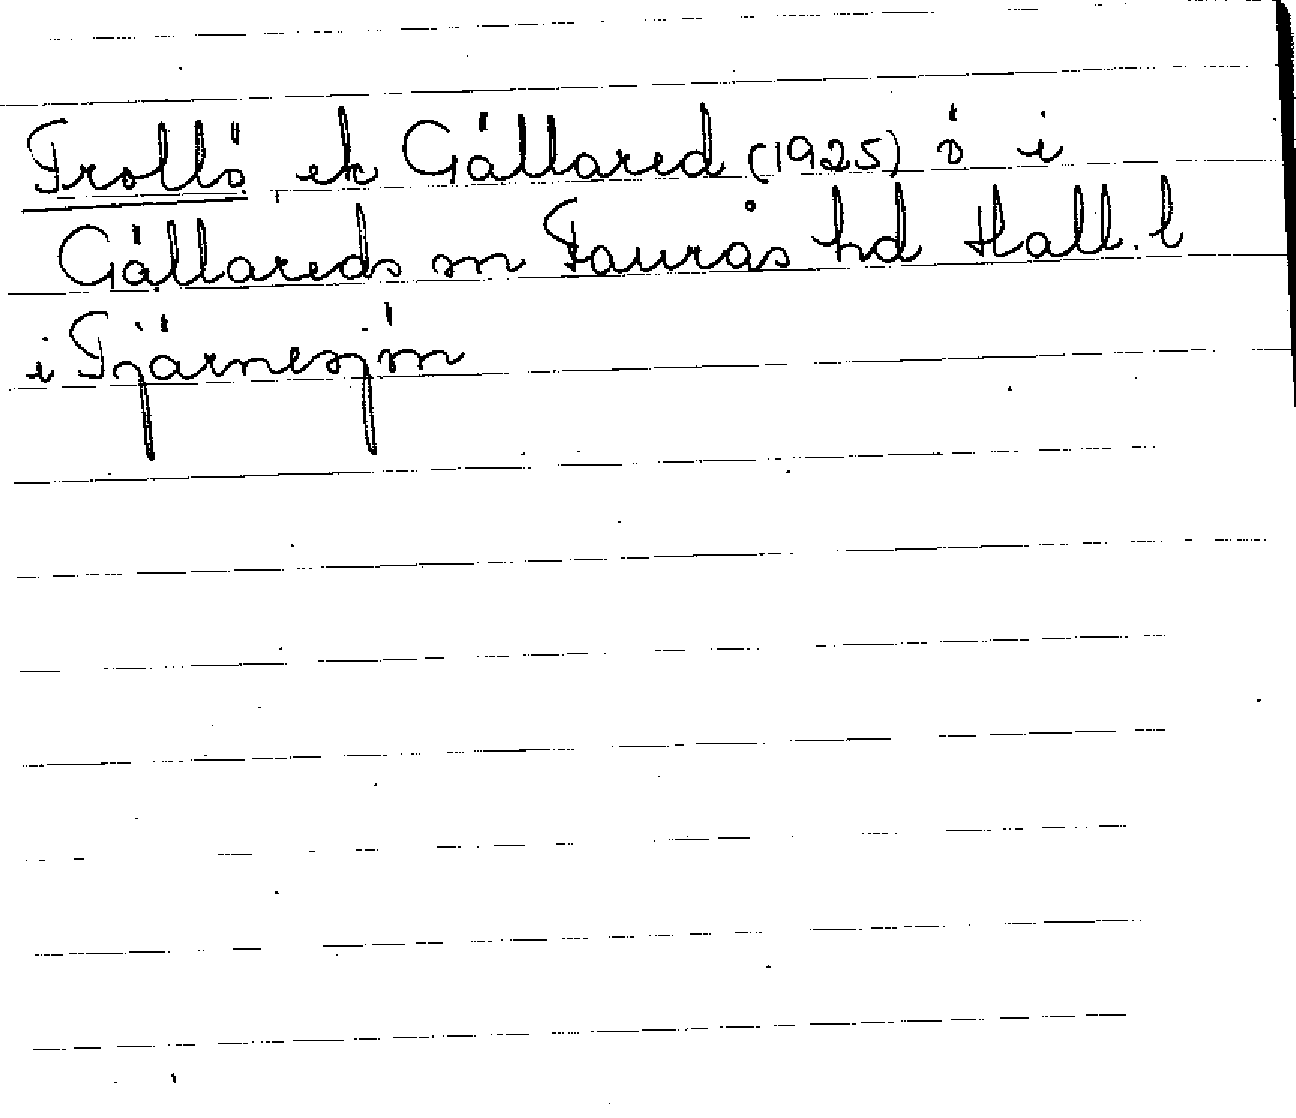 Trollö ek Gällared (1925) ö i
Gällareds sn Faurås hd Hall. l
i Tjärnesjön